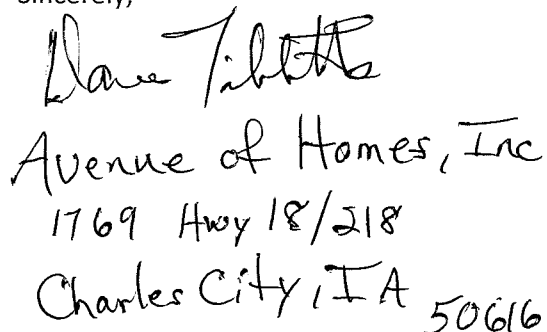 Sincerely,
Dave Tibbetts
Avenue of Homes, Inc
1769 Hwy 18/218
Charles City, IA 50616